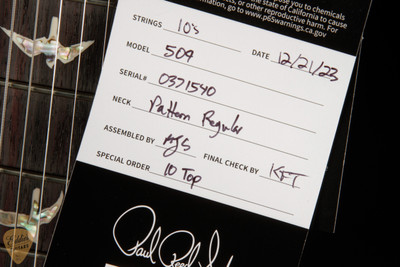 use you to chemicals
the state of California to cause
or other reproductive harm. For
go to www.p65warnings.ca.gov
STRINGS 10's
MODEL 509 DATE 12/21/23
SERIAL# 0371540
NECK Pattern Regular
ASSEMBLED BY AJS FINAL CHECK BY KFT
SPECIAL ORDER 10 Top
Paul Reed